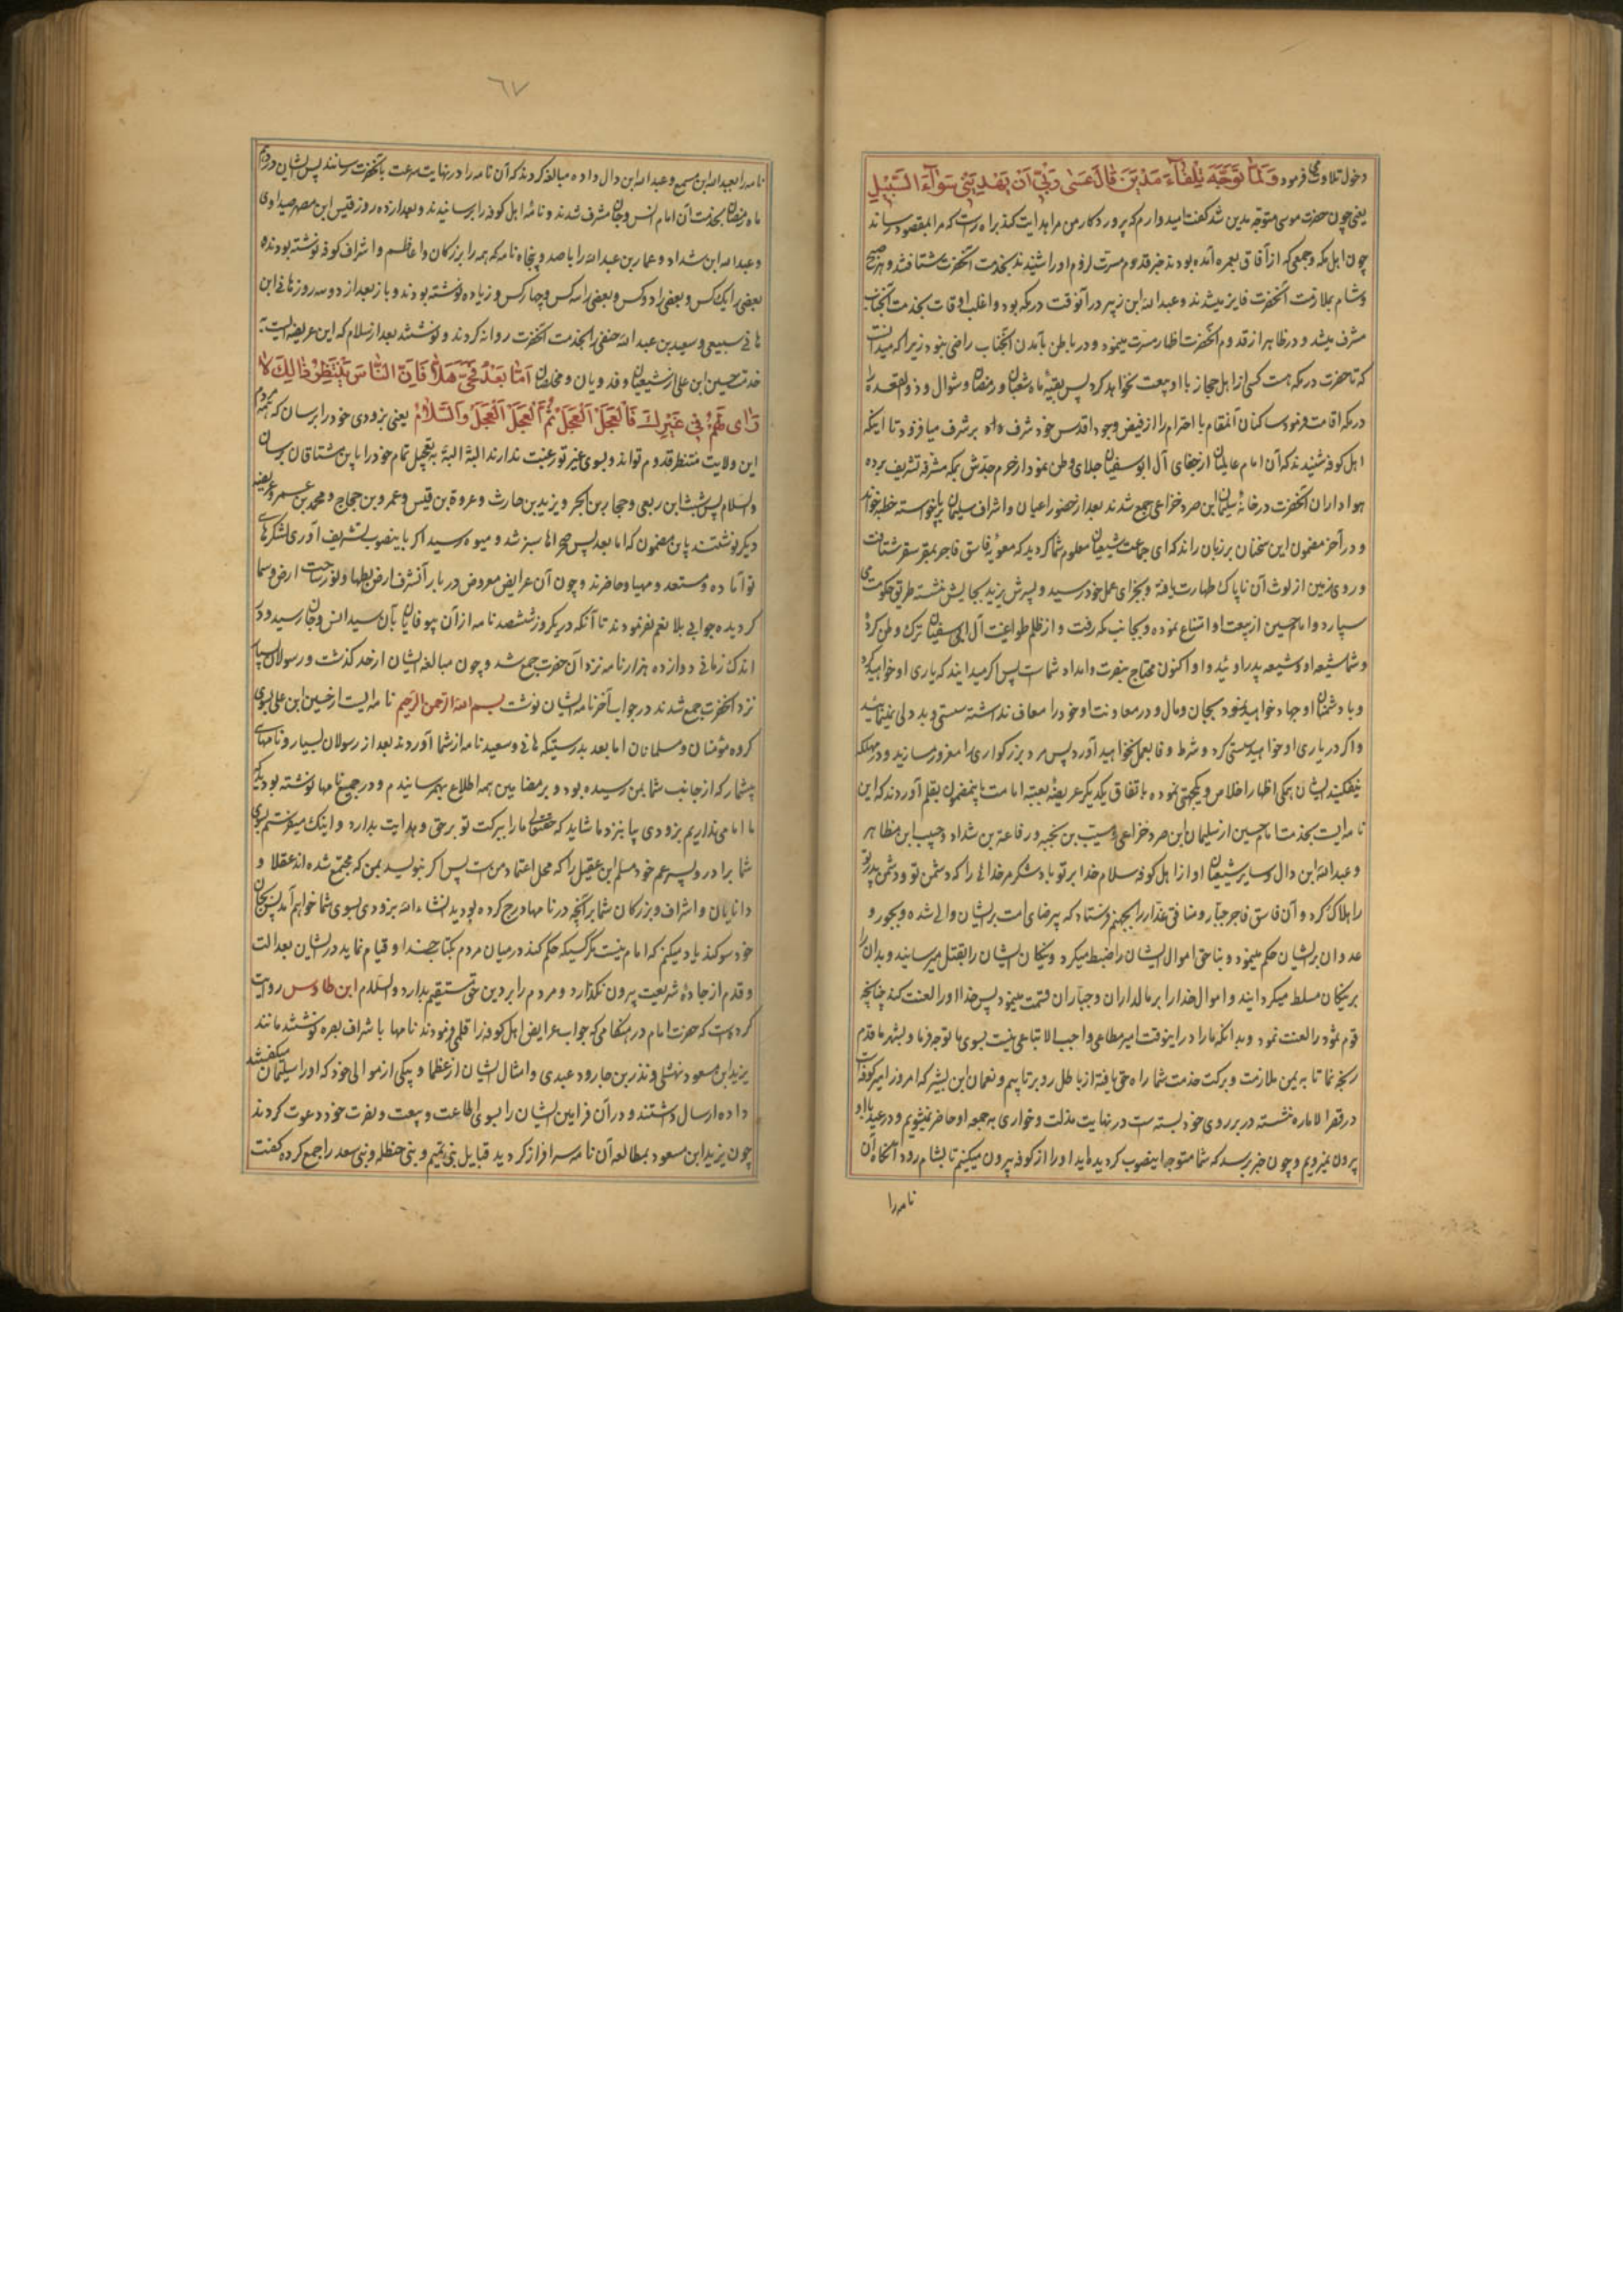 دخول تلاوت می فرمود وَلَمَّا تَوَجَّهَ تِلْقَاءَ مَدْيَنَ قَالَ عَسَى رَبِّي اَنْ يَهْدِيَنِي سَوَاءَ السَّبِيلِ
یعنی چون حضرت موسی متوجه مدین شد کفت امیدوارم که پروردکار من مرا هدایت کند براه راست که مرا بمقصود رساند
چون اهل مکه و جمعی که از آفاق بعمره آمده بودند خبر قدوم مسرت لزوم او را شنیدند بخدمت آنحضرت شتافتند و هر صبح
و شام بملازمت آنحضرت فایز میشدند و عبدالله ابن زبیر در آنوقت در مکه بود و اغلب اوقات بخدمت آنجناب
مشرف میشد و در ظاهر از قدوم آنحضرت اظهار مسرت مینمود و در باطن بآمدن آنجناب راضی نبود زیرا که میدانست
که تا حضرت در مکه است کسی از اهل حجاز با او بیعت نخواهد کرد پس بقیهٔ ماه شعبان و رمضان و شوال و ذوالقعده را
در مکه اقامت فرمود ساکنان آنمقام با احترام را از فیض وجود اقدس خود شرف بر شرف میافزود تا اینکه
اهل کوفه شنیدند که آن امام عالمیان از جفای آل ابوسفیان جلای وطن نموده از حرم جدش بمکه مشرفه تشریف برده
هواداران آنحضرت در خانهٔ سلیمان ابن صرد خزاعی جمع شدند بعد از حضور اعیان و اشراف سلیمان برخواسته خطبه خواند
و در آخر مضمون این سخنان بر زبان راند که ای جماعت شیعیان معلوم شما کردید که معویه فاسق فاجر بمقر سقر شتافت
و روی زمین از لوث آن ناپاک طهارت یافته و بجزای عمل خود رسید و پسرش یزید بجایش نشسته طریق حکومت می
سپارد و امام حسین از بیعت او امتناع نموده و بجانب مکه رفت و از ظلم طواغیت آل ابی سفیان ترک وطن کرد
و شما شیعه او و شیعه پدر او ئید و او اکنون محتاج بنصرت و امداد شماست پس اکر میدانید که یاری او خواهید کرد
و با دشمنان او جهاد خواهید نمود بجان و مال و در معاونت او خود را معاف نداشته سستی و بددلی نمینمائید
و اکر در یاری او خواهید سستی کرد و شرط وفا بعمل نخواهید آورد پس مرد بزرکواری را مغرور مسازید و در مهلکه
نیفکنید ایشان همکی اظهار اخلاص و یکجهتی نموده باتفاق یکدیکر عریضهٔ بعتبه امامت باینمضمون بقلم آوردند که این
نامه ایست بخدمت امام حسین از سلیمان ابن صرد خزاعی و مسیب بن نجبه و رفاعة بن شداد و حبیب ابن مظاهر
و عبدالله ابن وال و سایر شیعیان او از اهل کوفه سلام خدا بر تو باد شکر مر خدائی را که دشمن تو و دشمن پدر تو
را هلاک کرد و آن فاسق فاجر جبار و منافق غدار را بجهنم فرستاد که بیرضای امت بر ایشان والی شده و بجور و
عدوان بر ایشان حکم مینمود و بناحق اموال ایشان را ضبط میکرد و نیکان ایشان را بقتل میرسانید و بدان را
بر نیکان مسلط میکردانید و اموال خدا را بر مالداران و جباران قسمت مینمود پس خدا او را لعنت کند چنانچه
قوم ثمود را لعنت نمود و بدانکه ما را در اینوقت امیر مطاعی واجب الاتباعی نیست بسوی ما توجه فرما و بشهر ما قدم
رنجه نما تا به یمن ملازمت و برکت خدمت شما راه حق یافته از باطل رو بر تابیم و نعمان ابن بشیر که امروز امیر کوفه است
در قصر الاماره نشسته در بر روی خود بسته ست در نهایت مذلت و خواری به جمعه او حاضر نمیشویم و در عید با او
بیرون نمیرویم و چون خبر برسد که شما متوجه اینصوب کردیده اید او را از کوفه بیرون میکنیم تا بشام رود آنکاه آن
نامه را
٦٧
نامه را بعبدالله ابن مسمع و عبدالله ابن وال داده مبالغه کردند که آن نامه را در نهایت سرعت بآنحضرت رسانند پس ایشان در دهم
ماه رمضان بخدمت آن امام انس و جان مشرف شدند و نامهٔ اهل کوفه را برسانیدند و بعد از دو روز قیس ابن مصهر صیداوی
و عبدالله ابن شداد و عمار بن عبدالله را با صد و پنجاه نامه که همه را بزرکان و اعاظم و اشراف کوفه نوشته بودند
بعضی را یک کس و بعضی را دو کس و بعضی را سه کس و چهار کس و زیاده نوشته بودند و باز بعد از دو سه روز هانی ابن
هانی سبیعی و سعید بن عبدالله حنفی را بخدمت آنحضرت روانه کردند و نوشتند بعد از سلام که این عریضه ایست
خدمت حسین ابن علی از شیعیان و فدویان و مخلصان اَمَّا بَعْدُ فَحَيَّ هَلاً فَاِنَّ النَّاسَ يَنْتَظِرُونَكَ لَا
رَاىَ لَهُمْ فِي غَيْرِكَ فَالْعَجَلَ الْعَجَلَ ثُمَّ الْعَجَلَ الْعَجَلَ وَالسَّلَامُ یعنی بزودی خود را برسان که همه مردم
این ولایت منتظر قدوم تواند و بسوی غیر تو رغبت ندارند البته البته بتعجیل تمام خود را باین مشتاقان برسان
والسلام پس شبث ابن ربعی و حجار بن ابجر و یزید بن حارث و عروة بن قیس و عمرو بن حجاج و محمد بن عمرو عریضه
دیکر نوشتند باین مضمون که اما بعد پس صحراها سبز شد و میوه رسید اکر باینصوب تشریف آوری لشکرهای
تو آماده و مستعد و مهیا و حاضرند و چون آن عرایض معروض دربار آنشرف ارض بطحا و نور ساحت ارض و سما
کردیده جوابی بلا نعم نفرمودند تا آنکه در یکروز ششصد نامه از آن بیوفایان بآن سید انس و جان رسید و در
اندک زمانی دوازده هزار نامه نزد آن حضرت جمع شد و چون مبالغه ایشان از حد کذشت و رسولان بسیار
نزد آنحضرت جمع شدند در جواب آخر نامه ایشان نوشت بسم الله الرحمن الرحیم نامه ایست از حسین ابن علی بسوی
کروه مؤمنان و مسلمانان اما بعد بدرستیکه هانی و سعید نامه از شما آوردند بعد از رسولان بسیار و نامهای
بیشمار که از جانب شما بمن رسیده بود و بر مضامین همه اطلاع بهم رسانیدم و در جمیع نامها نوشته بودید که
ما امامی نداریم بزودی بیا بنزد ما شاید که حقتعالی ما را ببرکت تو بر حق و هدایت بدارد و اینک میفرستم بسوی
شما برادر و پسر عم خود مسلم ابن عقیل را که محل اعتماد منست پس اکر بنویسد بمن که مجتمع شده اند عقلا و
دانایان و اشراف و بزرکان شما بر آنچه در نامها درج کرده بودید انشاءالله بزودی بسوی شما خواهم آمد پس بجان
خود سوکند یاد میکنم که امام نیست مکر کسیکه حکم کند در میان مردم بکتاب خدا و قیام نماید در ایشان بعدالت
و قدم از جادهٔ شریعت بیرون نکذارد و مردم را بر دین حق مستقیم بدارد والسلام ابن طاوس روایت
کرده است که حضرت امام در هنکامی که جواب عرایض اهل کوفه را قلمی فرمودند نامها باشراف بصره نوشتند مانند
یزید ابن مسعود نهشلی و منذر بن جارود عبدی و امثال ایشان از عظما و بیکی از موالی خود که او را سلیمان میکفتند
داده ارسال داشتند و در آن فرامین ایشان را بسوی اطاعت و بیعت و نصرت خود دعوت کردند
چون یزید ابن مسعود بمطالعه آن نامه سرافراز کردید قبایل بنی تمیم و بنی حنظله و بنی سعد را جمع کرده کفت